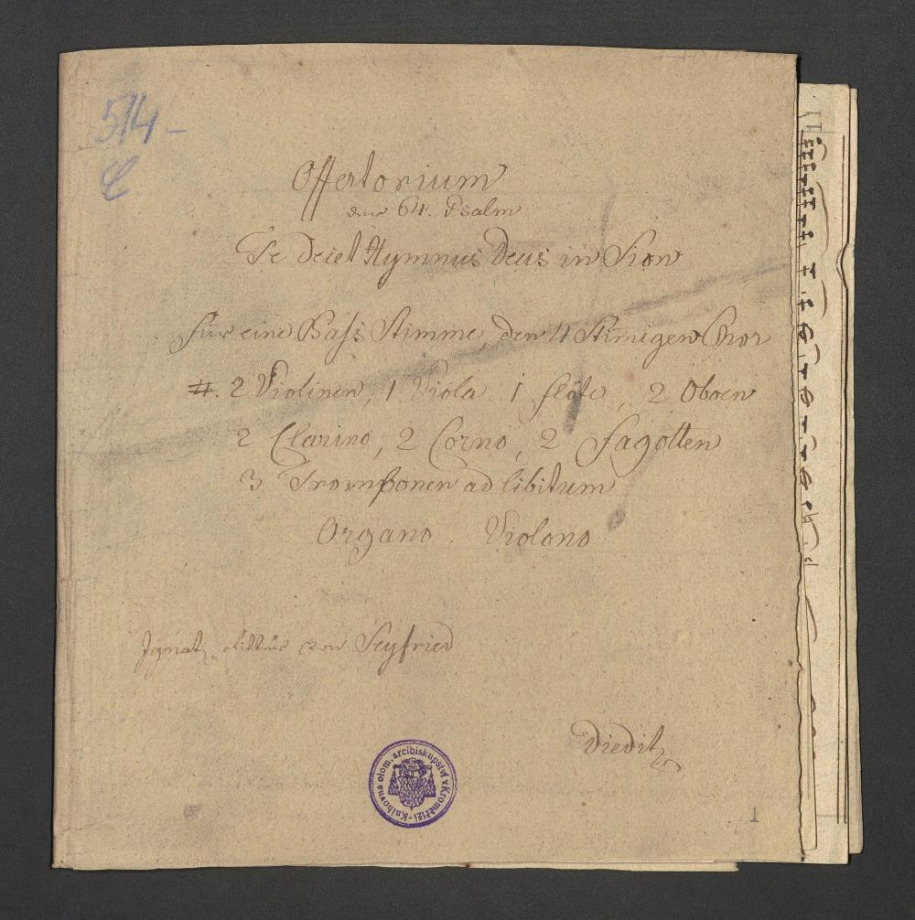 574-
C
Offertorium
der 64. Psalm
Te Decet Hymnus Deus in Sion
für eine Bass Stimme, den 4 Stimigen Chor
#. 2 Violinen, 1 Viola. 1 Flöte, 2 Oboen
2 Clarino, 2 Corno, 2 Fagotten
3 Tromponen ad libitum
Organo. Violono
Ignatz Ritter von Seyfried
Knihovna olom. arcibiskupství v Kroměříži
1